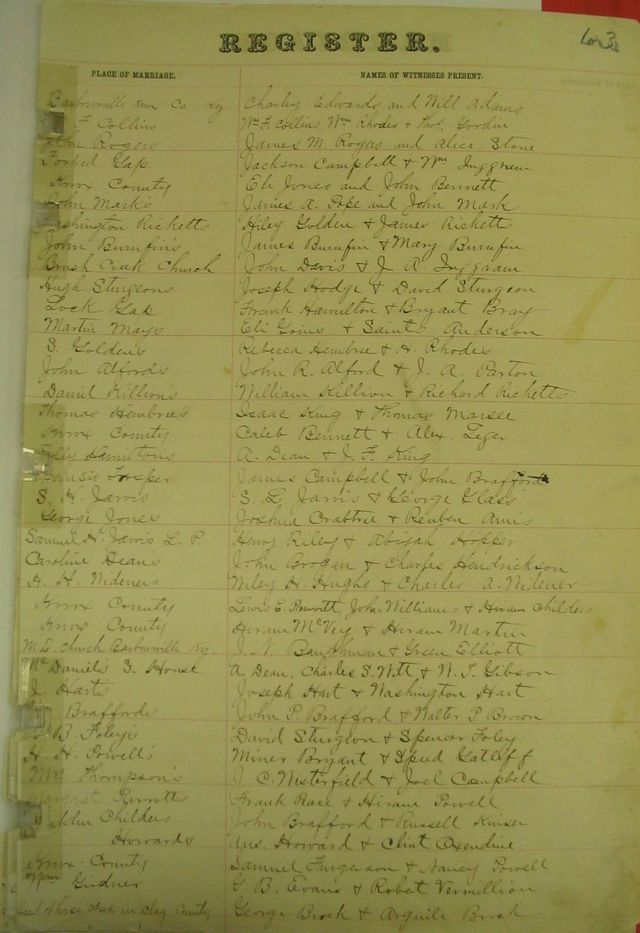 REGISTER.
PLACE OF MARRIAGE. NAMES OF WITNESSES PRESENT.
Barbourville Knox Co Ky Charley Edwards and Will Adams
F Collins Wm F. Collins Wm Rhodes & Thos. Goodin
John Rogers James M. Rogers and Alice Stone
Forked Gap Jackson Campbell & Wm Inggram
Knox County Eli Jones and John Bennett
John Mark's James A. Pope and John Mark
Washington Ricketts Hiley Golden & James Ricketts
John Burnfin's James Burnfin & Mary Burnfin
Brush Creek Church John Davis & J. R. Inggram
Hugh Sturgeons Joseph Hodge & David Sturgeon
Lock Gap Frank Hamilton & Bryant Bray
Martin Mays Eli Goins & Saint Anderson
S. Golden's Rebecca Hembree & H. Rhodes
John Alfords John R. Alford & J. A. Parton
Daniel Killion's William Killion & Richard Ricketts
Thomas Hembree's Isaac King & Thomas Marsee
Knox County Caleb Bennett & Alex. Leger
Hamiltons A. Dean & J. F. King
Hosper James Campbell & John Brafford
S. H. Jarvis S. L. Jarvis & George Glass
George Jones Joshua Crabtree & Reuben Amis
Samuel H. Jarvis L. P. Henry Riley & Abijah Hopper
Caroline Deans John Brogan & Charles Hendrickson
H. H. Wideners Wiley H. Hughs & Charles A. Widener
Knox County Lewis E. Prewitt, John Williams & Hiram Childers
Knox County Hiram McVey & Hiram Martin
M. E. Church Barbourville Ky. J. N. Baughman & Green Elliott
McDaniel's S. House A. Dean, Charles S. Nitt & W. T. Gibson
J. Harts Joseph Hart & Washington Hart
Braffords John P. Brafford & Walter P. Brown
B. Foley's David Sturgeon & Spencer Foley
H. H. Powell's Miner Bryant & Speed Gatliff
Thompson's J. C. Westerfield & Joel Campbell
Margaret Frank Race & Hiram Powell
Childers John Brafford & Russell Kinser
Howards Aus. Howard & Clint Oxendine
Knox County Samuel Furgerson & Nancy Powell
Wm Girdner G. B. Evans & Robert Vermillion
Head of in Clay County George Brock & Arguile Brock